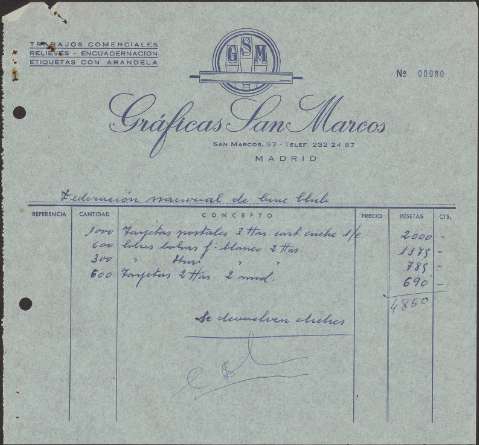 TRABAJOS COMERCIALES
RELIEVES - ENCUADERNACION
ETIQUETAS CON ARANDELA
GSM
Nº 00080
Gráficas San Marcos
SAN MARCOS, 37 - TELEF. 232 24 87
MADRID
Federación nacional de Cine Clubs
REFERENCIA CANTIDAD CONCEPTO PRECIO PESETAS CTS.
1000 Tarjetas postales 3 ttas 2000 -
600 bolsas f. blanco 2 ttas 1375 -
300 " " " 785 -
600 Tarjetas 2 ttas 2 mod. 690 -
4850
Se devuelven clichés